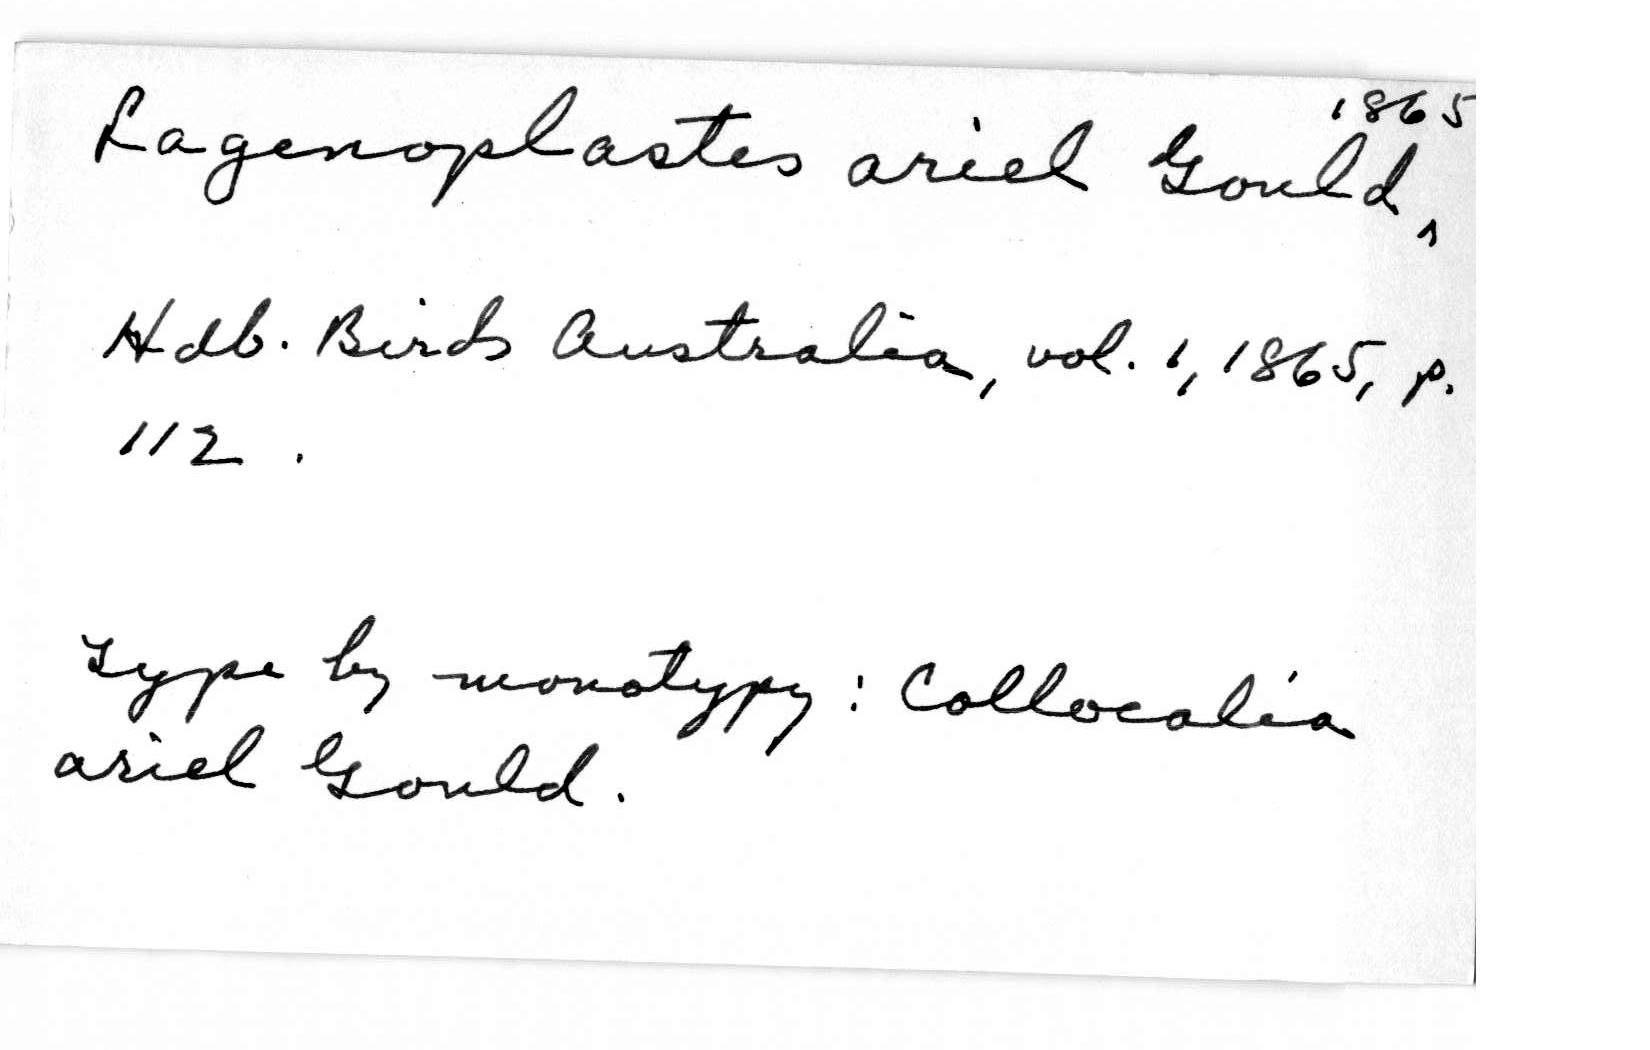 Lagenoplastes ariel Gould, 1865
Hdb. Birds Australia, vol. 1, 1865, p.
112.
Type by monotypy: Collocalia
ariel Gould.